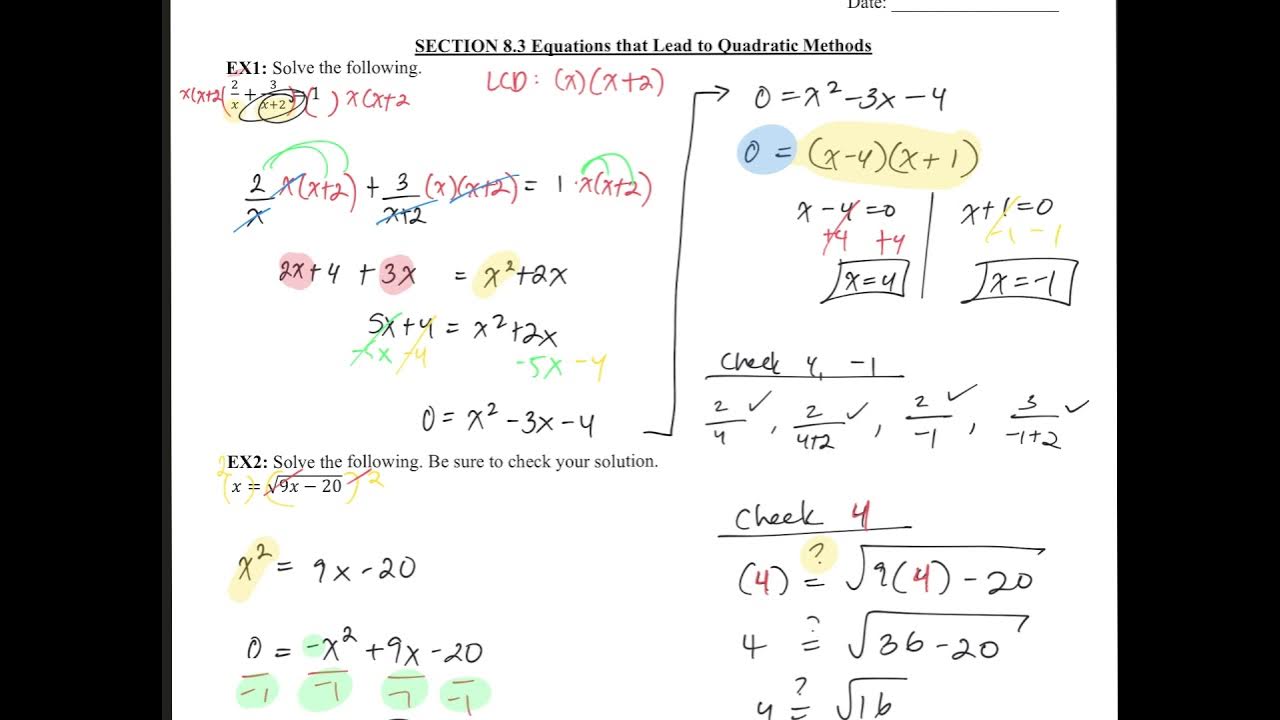 Date: ____________________
SECTION 8.3 Equations that Lead to Quadratic Methods
EX1: Solve the following.
x(x+2( 2/x + 3/(x+2) ) = 1 ( ) x(x+2
LCD: (x)(x+2)
2/x x(x+2) + 3/(x+2) (x)(x+2) = 1 · x(x+2)
2x+4 + 3x = x²+2x
5x+4 = x²+2x
-5x -4 -5x -4
0 = x² -3x -4
0 = x² -3x -4
0 = (x-4)(x+1)
x-4=0 x+1=0
+4 +4 -1 -1
x=4 x=-1
Check 4, -1
2/4 ✓, 2/(4+2) ✓, 2/-1 ✓, 3/(-1+2) ✓
EX2: Solve the following. Be sure to check your solution.
2( ) ( )2
x = √9x − 20
x² = 9x -20
0 = -x² +9x -20
-1 -1 -1 -1
Check 4
(4) ?= √9(4) - 20
4 ?= √36-20
4 ?= √16